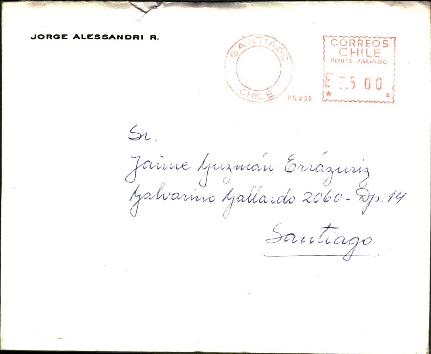 JORGE ALESSANDRI R.
SANTIAGO
CHILE
CORREOS
CHILE
PORTE PAGADO
5 00
Sr.
Jaime Guzmán Errázuriz
Galvarino Gallardo 2060 - Dp. 14
Santiago